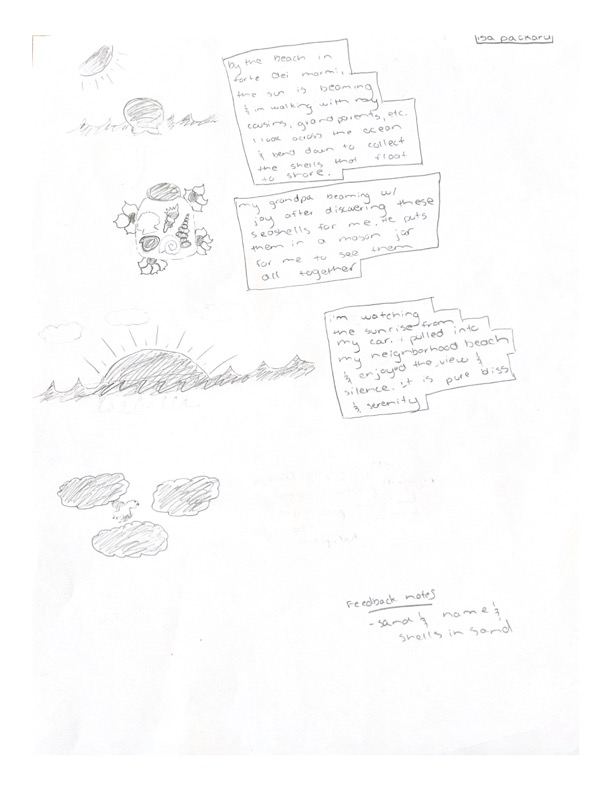 isa packard
by the beach in
forte dei marmi,
the sun is beaming
& i'm walking with my
cousins, grandparents, etc.
i look across the ocean
& bend down to collect
the shells that float
to shore.
my grandpa beaming w/
joy after discvering these
seashells for me. he puts
them in a mason jar
for me to see them
all together
i'm watching
the sunrise from
my car. i pulled into
my neighborhood beach
& enjoyed the view &
silence. it is pure bliss
& serenity
Feedback notes
- sand & name &
shells in sand